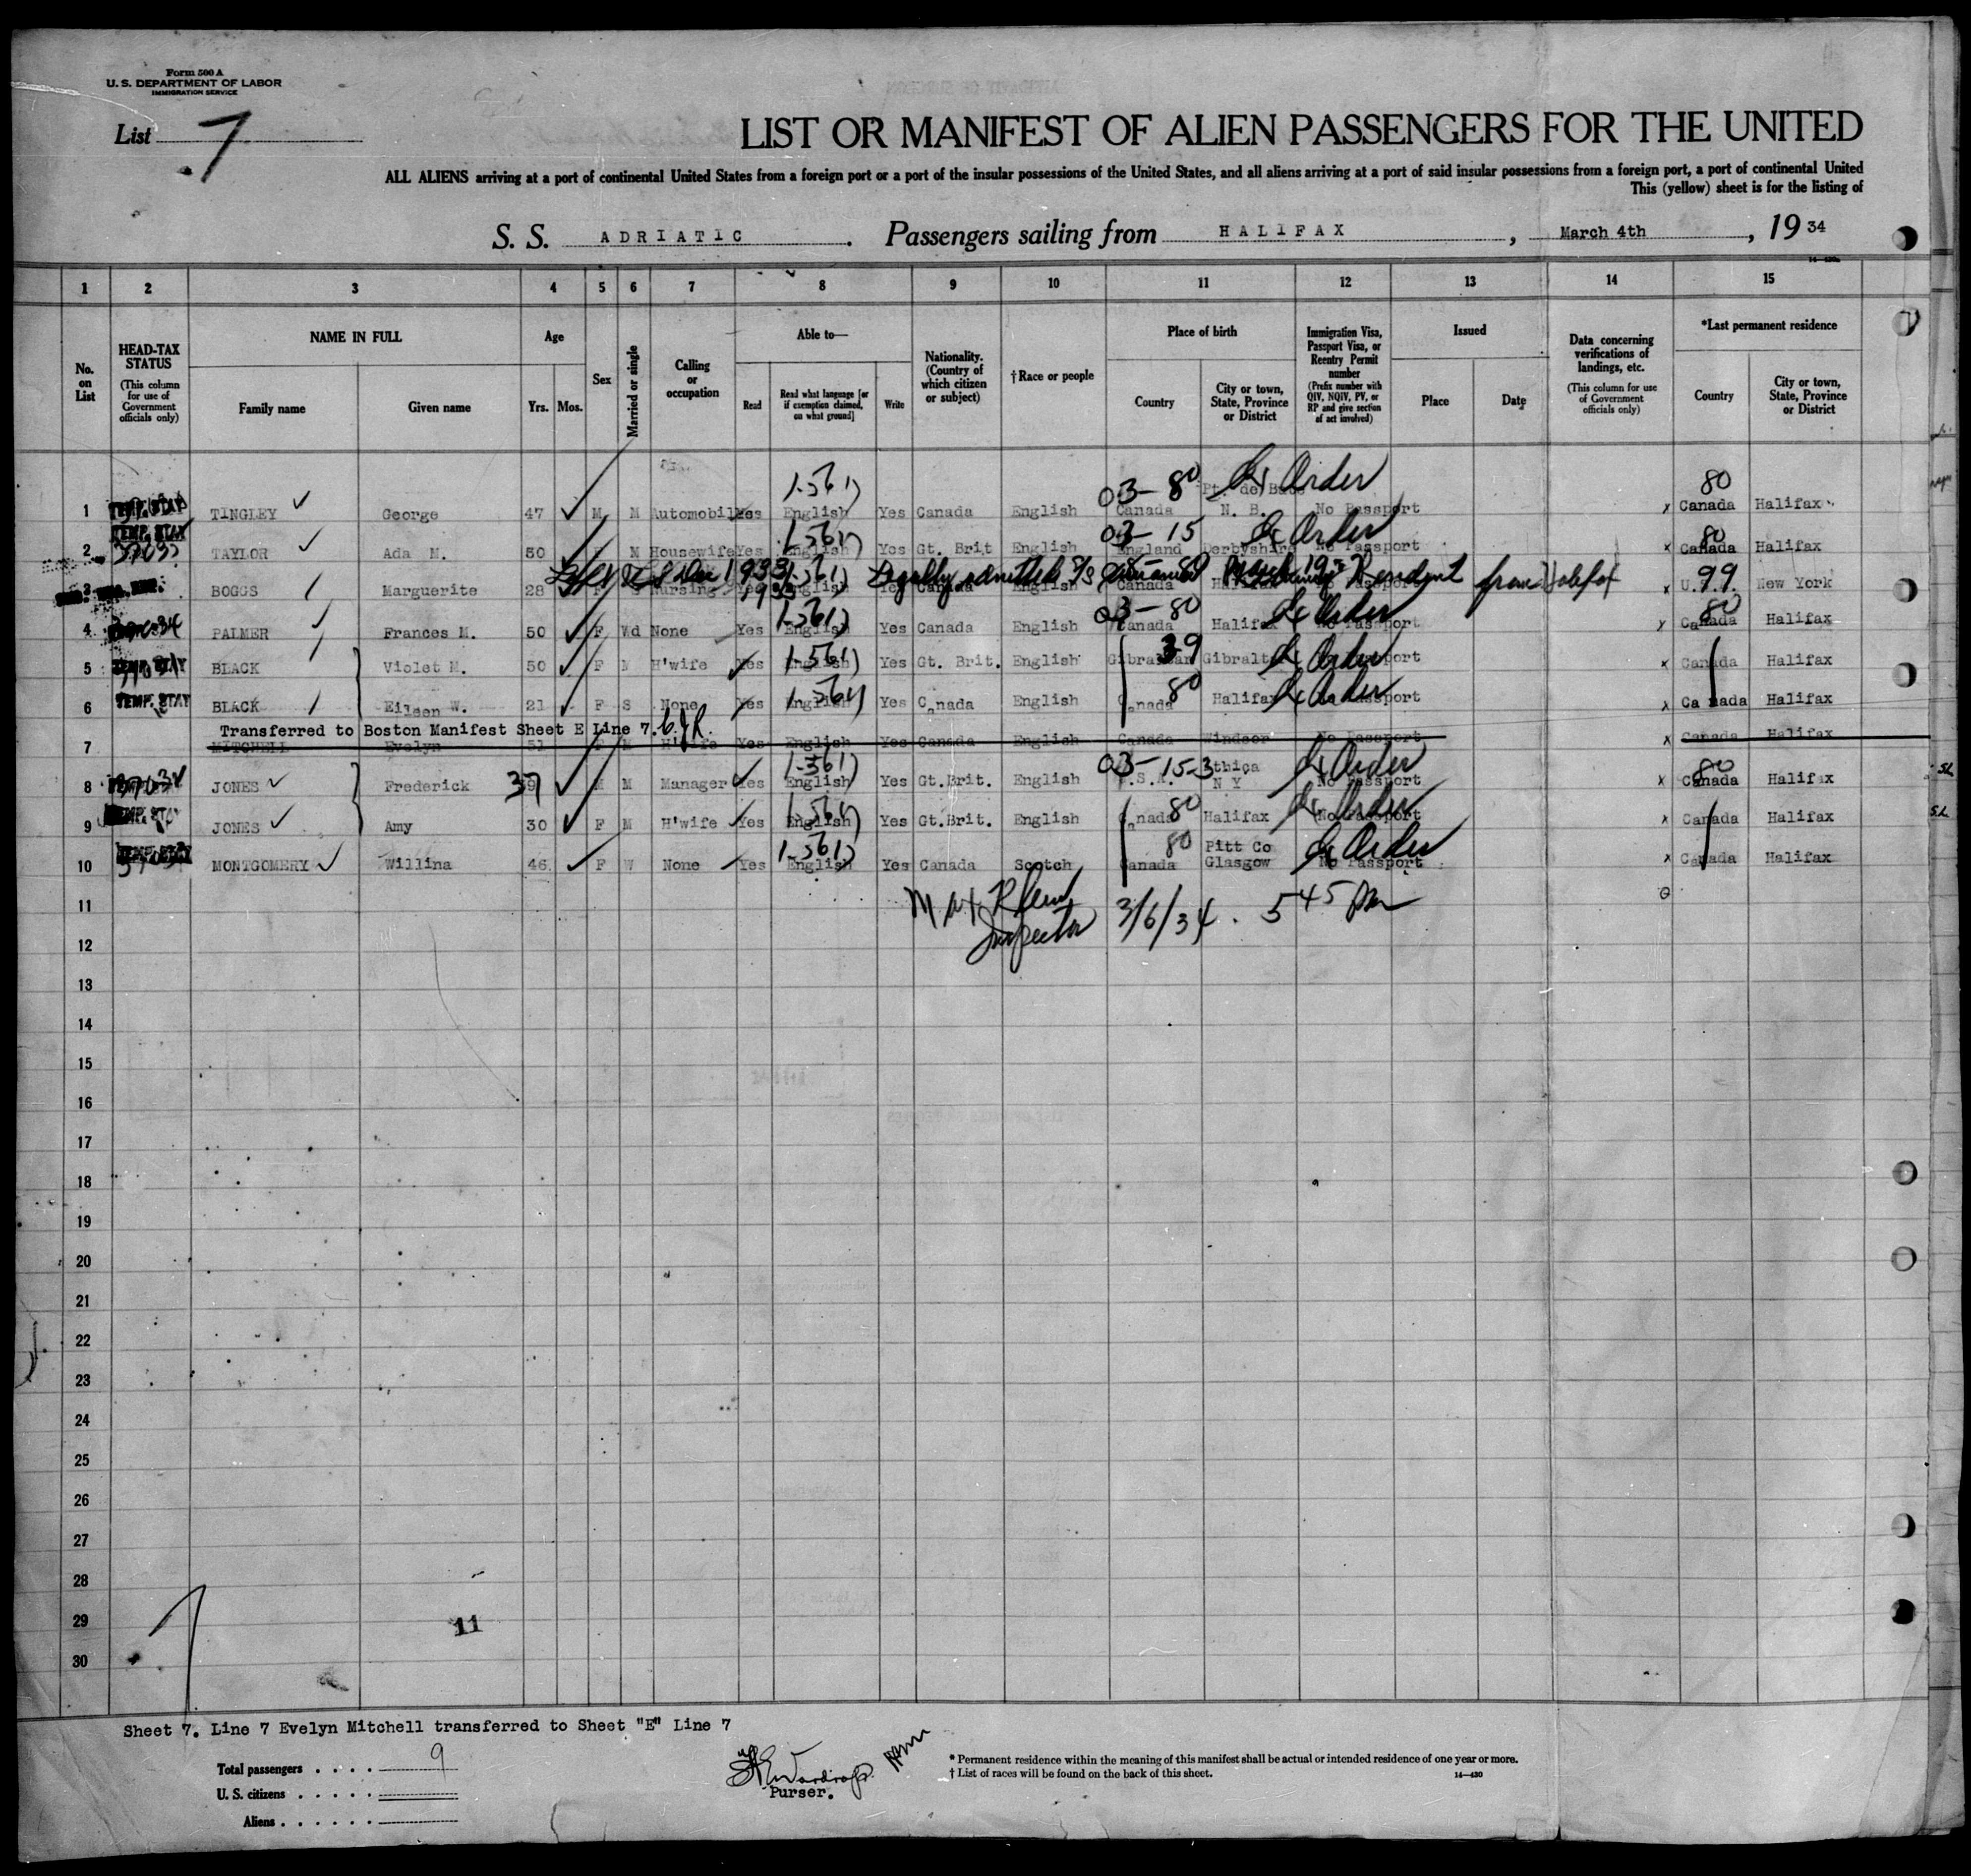 Form 500 A
U. S. DEPARTMENT OF LABOR
IMMIGRATION SERVICE
List 7
LIST OR MANIFEST OF ALIEN PASSENGERS FOR THE UNITED
ALL ALIENS arriving at a port of continental United States from a foreign port or a port of the insular possessions of the United States, and all aliens arriving at a port of said insular possessions from a foreign port, a port of continental United
This (yellow) sheet is for the listing of
S. S. ADRIATIC. Passengers sailing from HALIFAX, March 4th, 19 34
1 2 3 4 5 6 7 8 9 10 11 12 13 14 15
No. on List
HEAD-TAX STATUS
(This column for use of Government officials only)
NAME IN FULL
Family name
Given name
Age
Yrs. Mos.
Sex
Married or single
Calling or occupation
Able to—
Read
Read what language [or if exemption claimed, on what ground]
Write
Nationality. (Country of which citizen or subject)
† Race or people
Place of birth
Country
City or town, State, Province or District
Immigration Visa, Passport Visa, or Reentry Permit number
(Prefix number with QIV, NQIV, PV, or RP and give section of act involved)
Issued
Place
Date
Data concerning verifications of landings, etc.
(This column for use of Government officials only)
*Last permanent residence
Country
City or town, State, Province or District
1 TEMP. STAY TINGLEY George 47 M M Automobiles Yes English Yes Canada English 03-80 Canada N. B. No Passport Ex Order x 80 Canada Halifax
2 TEMP. STAY TAYLOR Ada M. 50 M Housewife Yes English Yes Gt. Brit English 03-15 England Derbyshire No Passport x 80 Canada Halifax
Left U S Dec 1933 Legally admitted S/S March 19 Resident from Halifax
3 BOGGS Marguerite 28 F S Nursing Yes English Yes Canada English Canada x U.S. 99 New York
4 PALMER Frances M. 50 F Wd None Yes English Yes Canada English 03-80 Canada Halifax No Passport x 80 Canada Halifax
5 TEMP. STAY BLACK Violet M. 50 F M H'wife Yes English Yes Gt. Brit. English 39 Gibraltar x Canada Halifax
6 TEMP. STAY BLACK Eileen W. 21 F S None Yes English Yes Canada English 80 Canada Halifax x Canada Halifax
Transferred to Boston Manifest Sheet E Line 7.
7 MITCHELL Evelyn 51 F M H'wife Yes English Yes Canada English Canada Windsor No Passport x Canada Halifax
8 JONES Frederick 39 37 M M Manager Yes English Yes Gt.Brit. English 03-15-3 U.S.A. Ithica N Y No Passport x 80 Canada Halifax
9 TEMP. STAY JONES Amy 30 F M H'wife Yes English Yes Gt.Brit. English 80 Canada Halifax No Passport x Canada Halifax
10 MONTGOMERY Willina 46 F W None Yes English Yes Canada Scotch 80 Canada Pitt Co Glasgow No Passport x Canada Halifax
11
Inspector 3/6/34. 5 45 PM
12
13
14
15
16
17
18
19
20
21
22
23
24
25
26
27
28
29 11
30
Sheet 7. Line 7 Evelyn Mitchell transferred to Sheet "E" Line 7
Total passengers . . . . 9
U. S. citizens . . . . .
Aliens . . . . . .
Purser.
* Permanent residence within the meaning of this manifest shall be actual or intended residence of one year or more.
† List of races will be found on the back of this sheet.
14—430